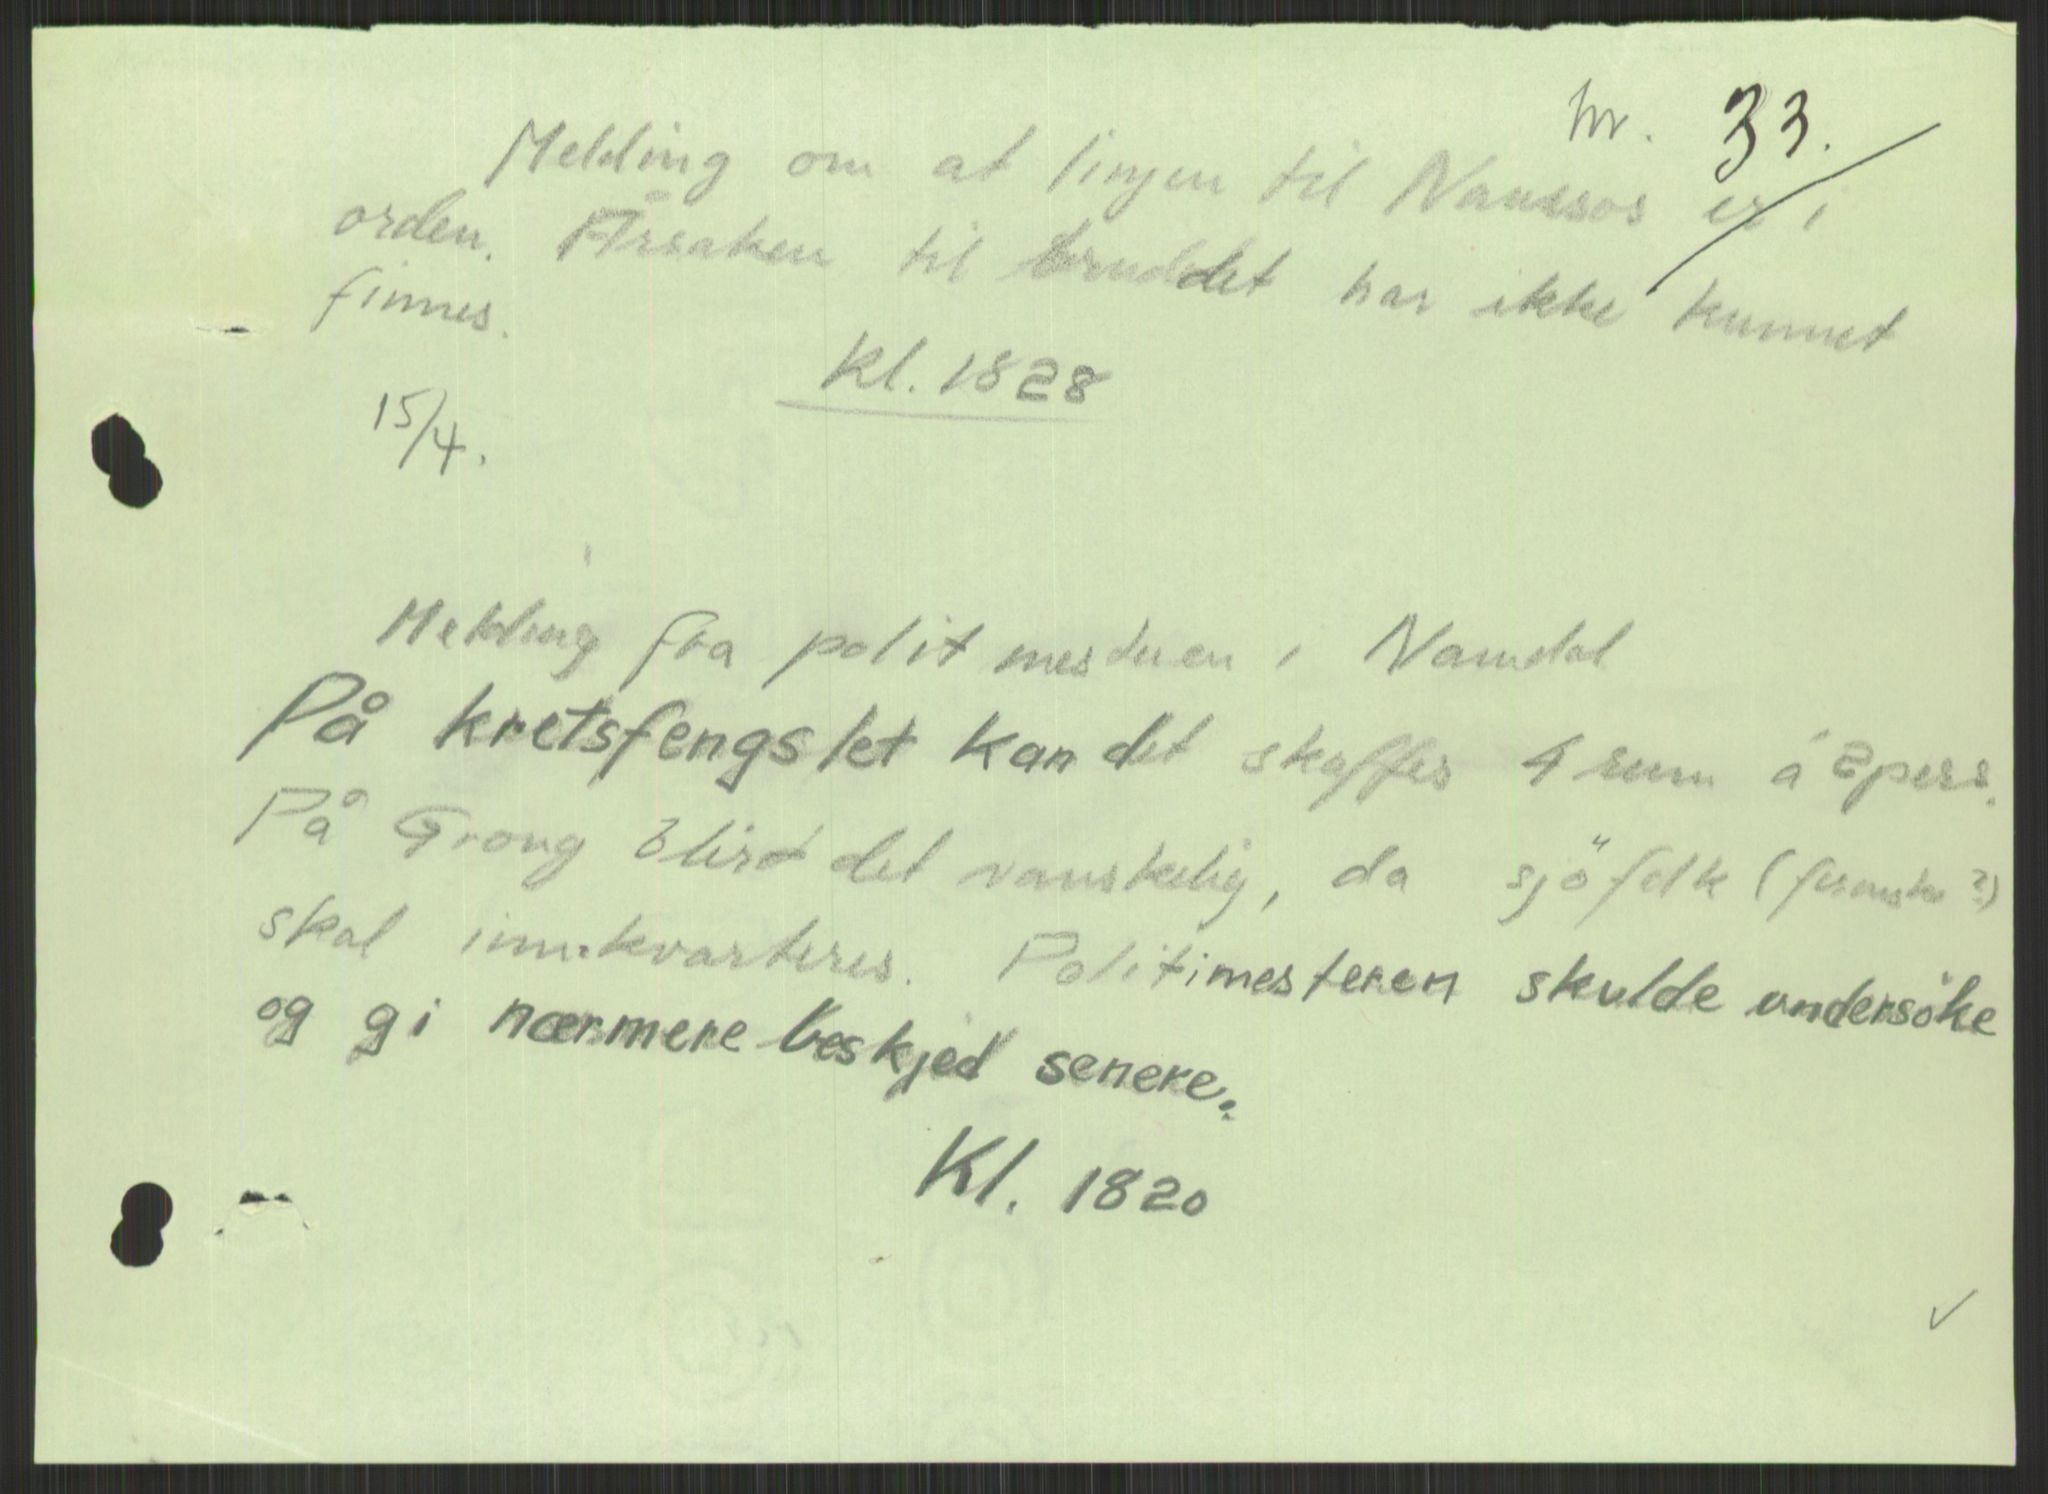 Nr. 33.
Melding om at linjen til Namsos er i
orden. Årsaken til bruddet har ikke kunnet
finnes.
Kl. 1828
15/4.
Melding fra politmesteren i Namdal
På kretsfengslet kan det skaffes 4 rum á 2 pers.
På Grong blir det vanskelig, da sjöfolk (?)
skal innkvarteres. Politimesteren skulde undersöke
og gi nærmere beskjed senere.
Kl. 1820